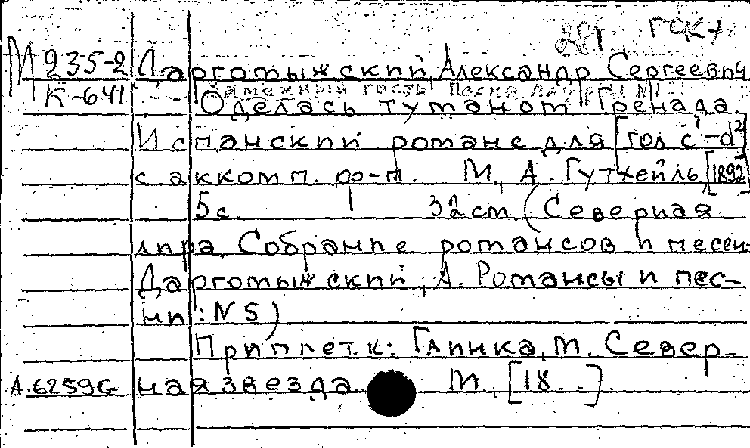 221 ГСК7
М 235-2 Даргомыжский, Александр Сергеевич
К-641 Каменный гость Песня
Оделась туманом Гренада.
Испанский романс для [гол c'-d²]
с аккомп. ф-п. М., А. Гутхейль, [1892]
5с. 32см. (Северная
лира. Собрание романсов и песен
Даргомыжский, А. Романсы и пес-
ни: N5)
Приплет. к: Глинка, М. Север-
А.6259с ная звезда. М. [18..]